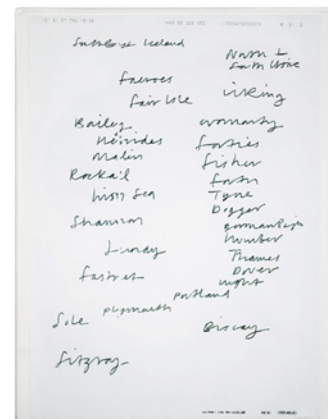 Southeast Iceland
North +
South Utsire
Faeroes
Fair Isle
Viking
Bailey
Cromarty
Hebrides
Forties
Malin
Fisher
Rockall
Forth
Irish Sea
Tyne
Dogger
Shannon
German Bight
Humber
Lundy
Thames
Fastnet
Dover
Wight
Portland
Plymouth
Sole
Biscay
Fitzroy